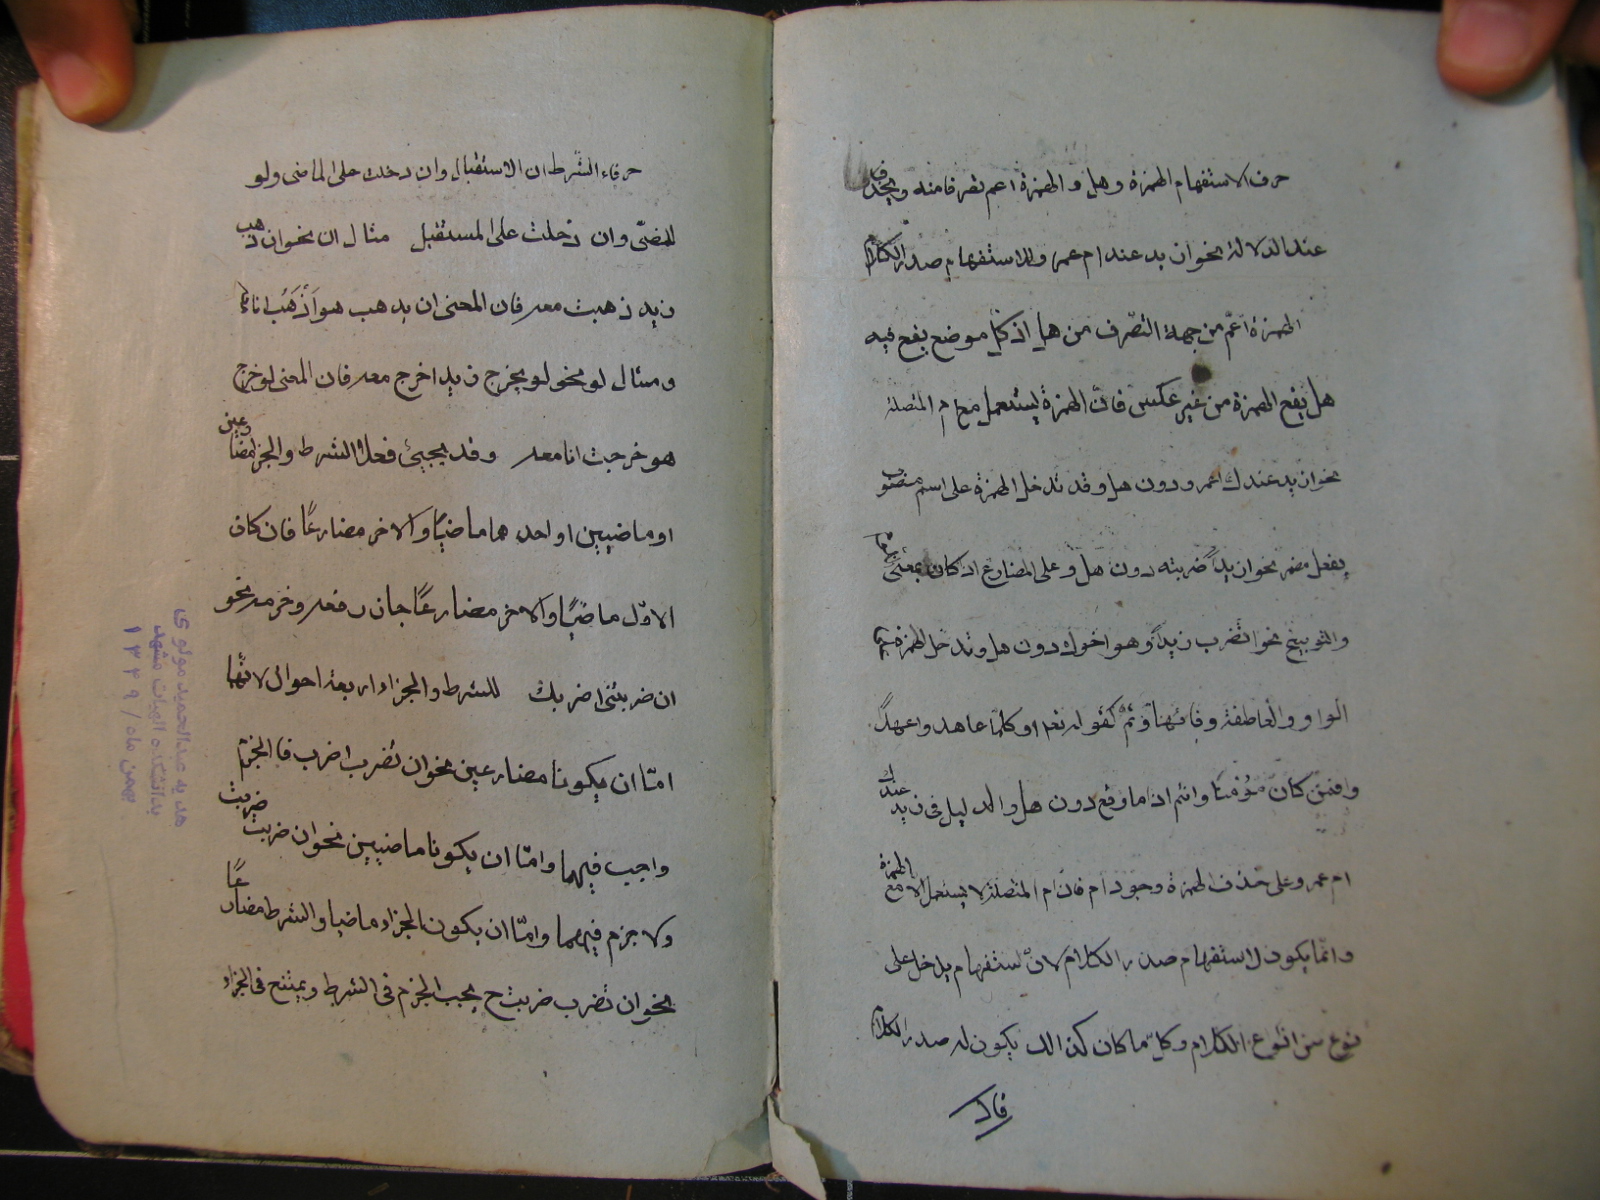 حرف الاستفهام الهمزة وهل والهمزة اعم تصرفا منه ويحذف
عند الدلالة نحوان يد عندام عمر وللاستفهام صدر الكلام
الهمزة اعمّ من جهة التصّرف من هل اذ كل موضع يقع فيه
هل يقع الهمزة من غير عكس فانّ الهمزة يستعمل مع ام المتصلة
نحوان يد عندك ام عمرو دون هل وقد تدخل الهمزة على اسم منصوب
بفعل مضمر نحوان يداً ضربته دون هل وعلى المضارع اذ كان بمعنى
والتوبيخ نحو اتضرب زيداً وهو اخوك دون هل وتدخل الهمزة
الواو والعاطفة وفائها وثمّ كقوله نعم اوكلّما عاهدوا عهداً
وافمن كان مؤمنا واثم اذا ما وقع دون هل والدليل فى زيد عندك
ام عمرو على حذف الهمزة وجود ام فانّ ام المتصلة لا يستعمل الا مع الهمزة
وانمّا يكون لاستفهام صدر الكلام لانّ استفهام يدخل على
نوع من انواع الكلام وكلّ ما كان كذالك يكون له صدر الكلام
حرفاء الشّرط ان الاستقبال وان دخلت على الماضى ولو
للمضّى وان دخلت على المستقبل مثال ان نحوان ذهب
زيد ذهبت معه فان المعنى ان يذهب هو اَذْهَبُ انا
ومثال لو نحو لو يخرج زيد اخرج معه فان المعنى لو خرج
هو خرجت انا معه وقد يجيئ فعلا الشرط والجزا مضارعين
او ماضيين او احدهما ماضيًا والاخر مضارعًا فان كان
الاوّل ماضيًا والاخر مضارعًا جاز رفعه وجزمه نحو
ان ضربتنى اضربك للشرط والجزاء اربعة احوال لانّهما
امّا ان يكونا مضارعين نحوان تضرب اضرب فالجزم
واجب فيهما وامّا ان يكونا ماضيين نحوان ضربت ضربت
ولا جزم فيهما وامّا ان يكون الجزاء ماضيا والشرط مضارعًا
نحوان تضرب ضربت ح يجب الجزم فى الشرط ويمتنع فى الجزاء
هديه عبدالحميد مولوى
بدانشكده الهيات مشهد
بهمن ماه / ١٣٤٩